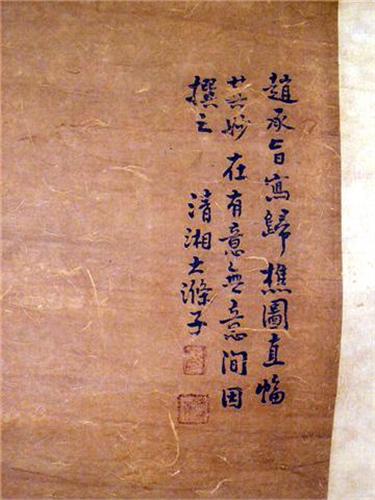 趙承旨寫歸樵圖直幅
其妙在有意無意間因
撰之 清湘大滌子